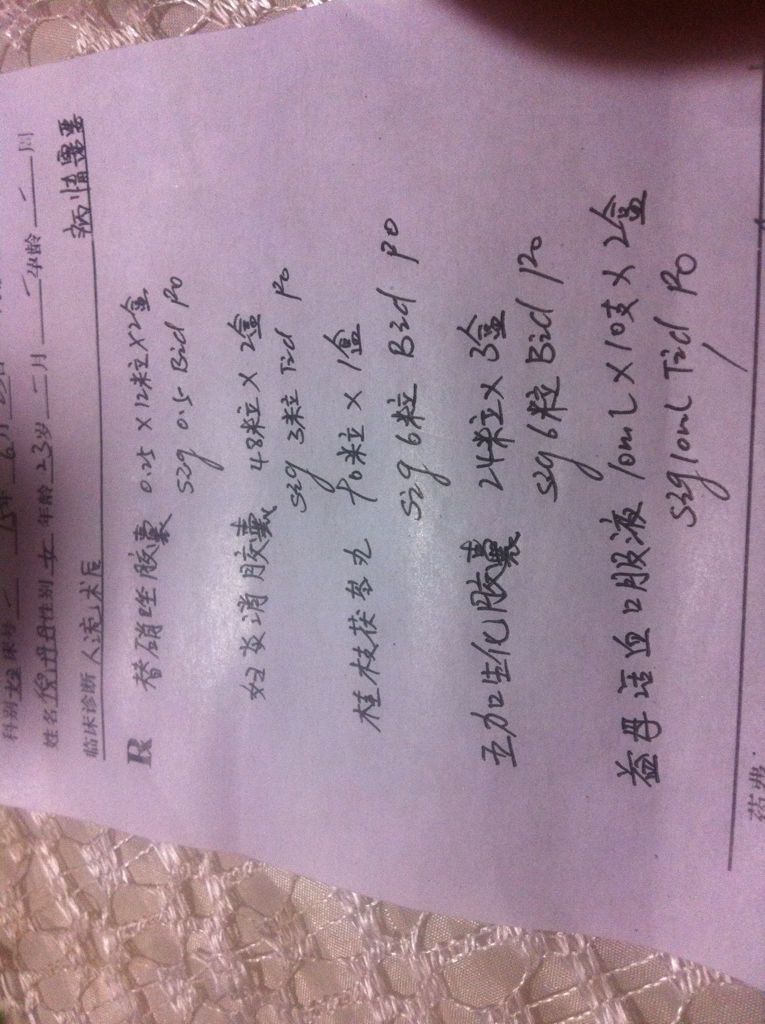 科别 妇 床号 一 15年 6月
姓名 倪丹丹 性别 女 年龄 23岁 二月 年龄 周
临床诊断 人流术后 病情需要
R
替硝唑胶囊 0.25 × 12粒 × 2盒
sig 0.5 Bid Po
妇炎消胶囊 48粒 × 2盒
sig 3粒 Tid Po
桂枝茯苓丸 粒 × 1盒
sig 6粒 Bid Po
五加生化胶囊 24粒 × 3盒
sig 6粒 Bid Po
益丹活血口服液 10mL × 10支 × 2盒
sig 10mL Tid Po
药费: